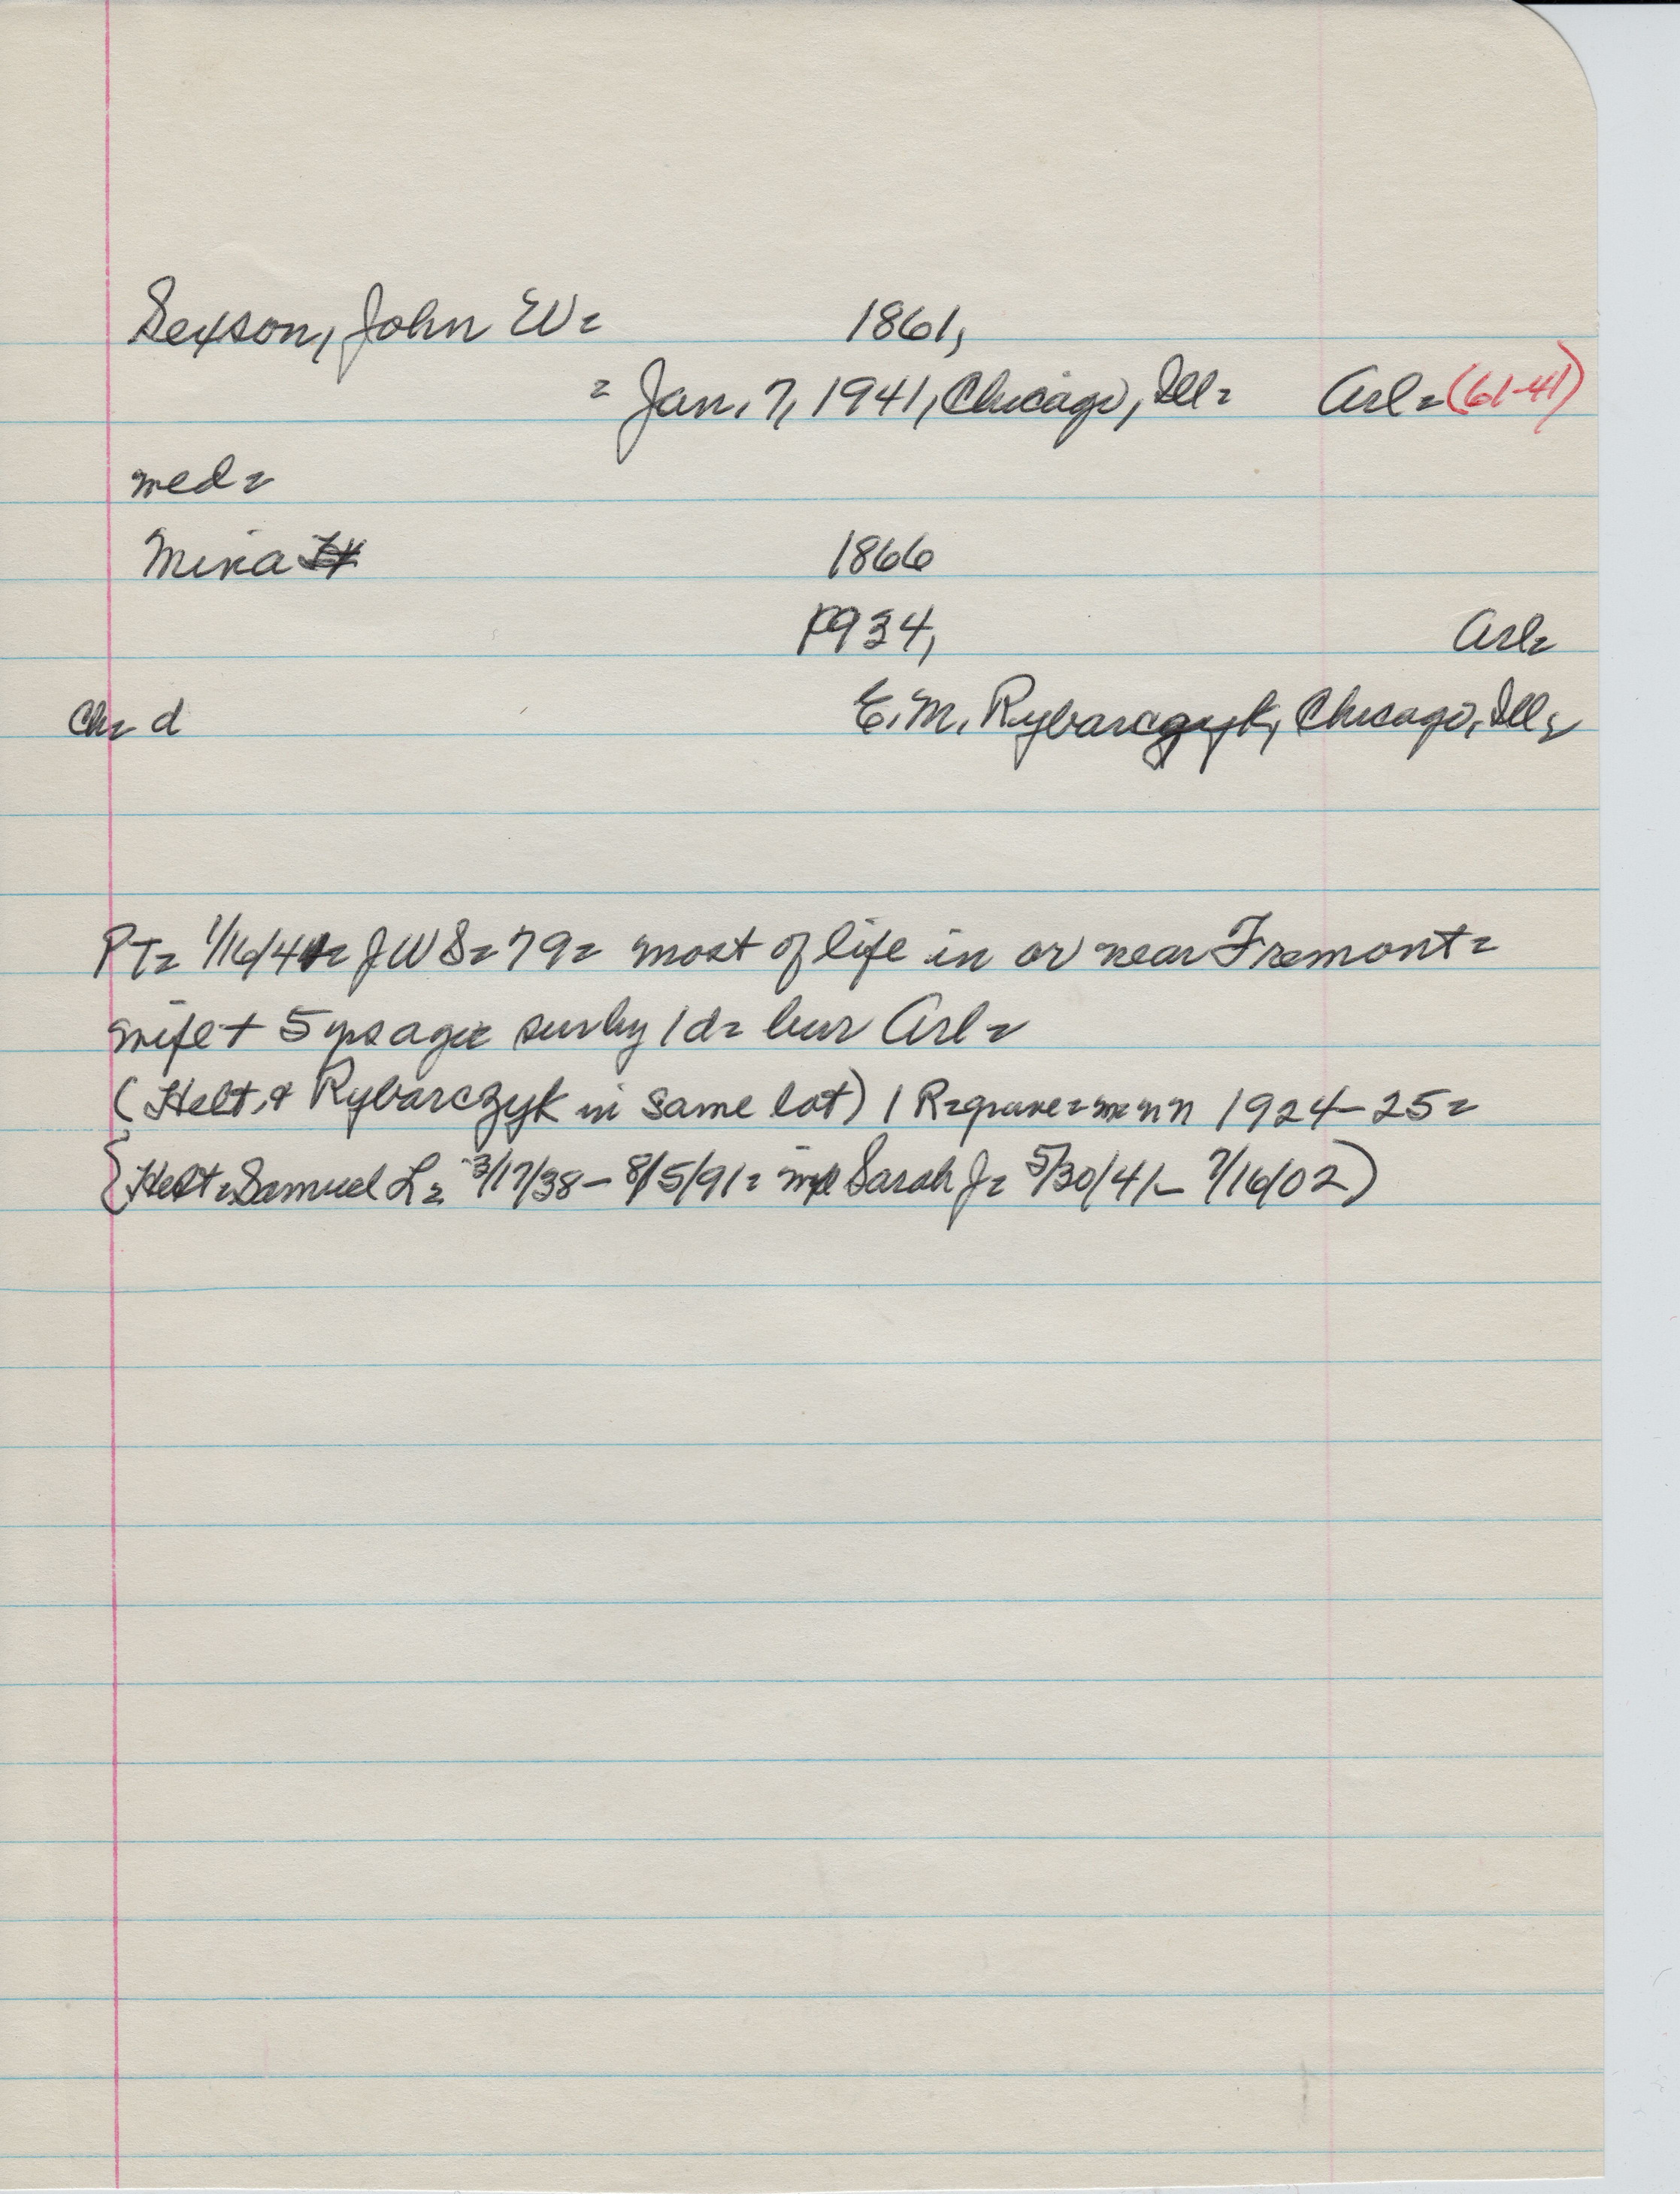 Sexson, John W= 1861,
= Jan, 7, 1941, Chicago, Ill= Arl= (61-41)
med=
Mina 1866
1934, Arl=
Ch= d E. M. Rybarczyk, Chicago, Ill=
PT= 1/16/41= JWS= 79= most of life in or near Fremont=
wife + 5 yrs ago= surv by 1 d= bur Arl=
(Helt, & Rybarczyk in same lot) 1 R= grave= 1924-25=
{Helt= Samuel L= 3/17/38 - 8/5/91= Sarah J= 5/30/41 - 7/16/02)